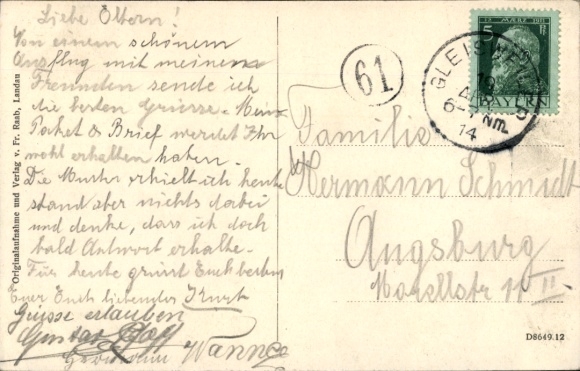 Liebe Eltern!
Von einem schönem
Ausflug mit meinem
Freunden sende ich
die besten Grüsse. Mein
Paket & Brief werdet Ihr
wohl erhalten haben.
Die Muster erhielt ich heute
stand aber nichts dabei
und denke, dass ich doch
bald Antwort erhalte.
Für heute grüsst Euch bestens
Euer Euch liebender Kurt
Grüsse erlauben
Gustav
Hermann Wanner
Originalaufnahme und Verlag v. Fr. Raab, Landau
61
12 MÄRZ 1911
5 Pf
BAYERN
GLEISWEILER
19
6-7 Nm.
14
Familie
Hermann Schmidt
Augsburg
11 II
D8649.12